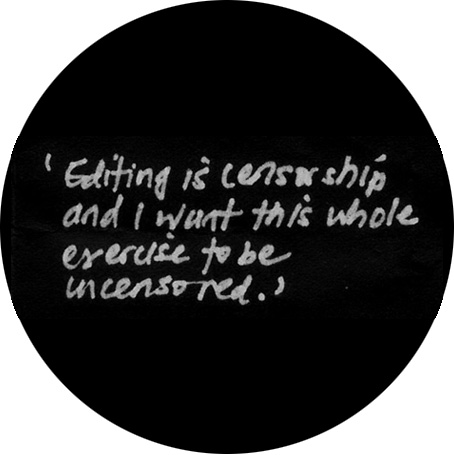 ‘Editing is censorship
and I want this whole
exercise to be
uncensored.’